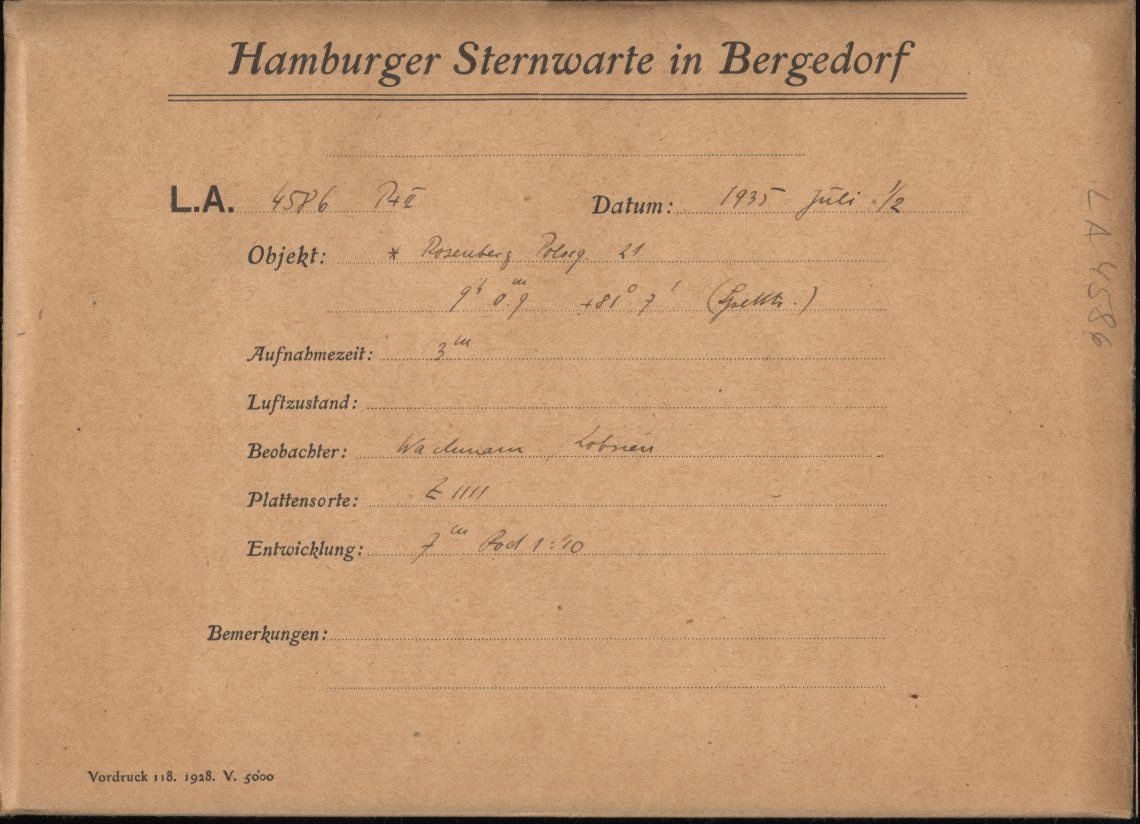 Hamburger Sternwarte in Bergedorf
L.A. 4586 P4II Datum: 1935 Juli 1/2
Objekt: * Rosenberg Polseq. 21
9h 0m.9 +81° 7' (Spektr.)
Aufnahmezeit: 3m
Luftzustand:
Beobachter: Wachmann,
Plattensorte: Z 1111
Entwicklung: 7m Rod 1:40
Bemerkungen:
Vordruck 118. 1928. V. 5000
LA 4586